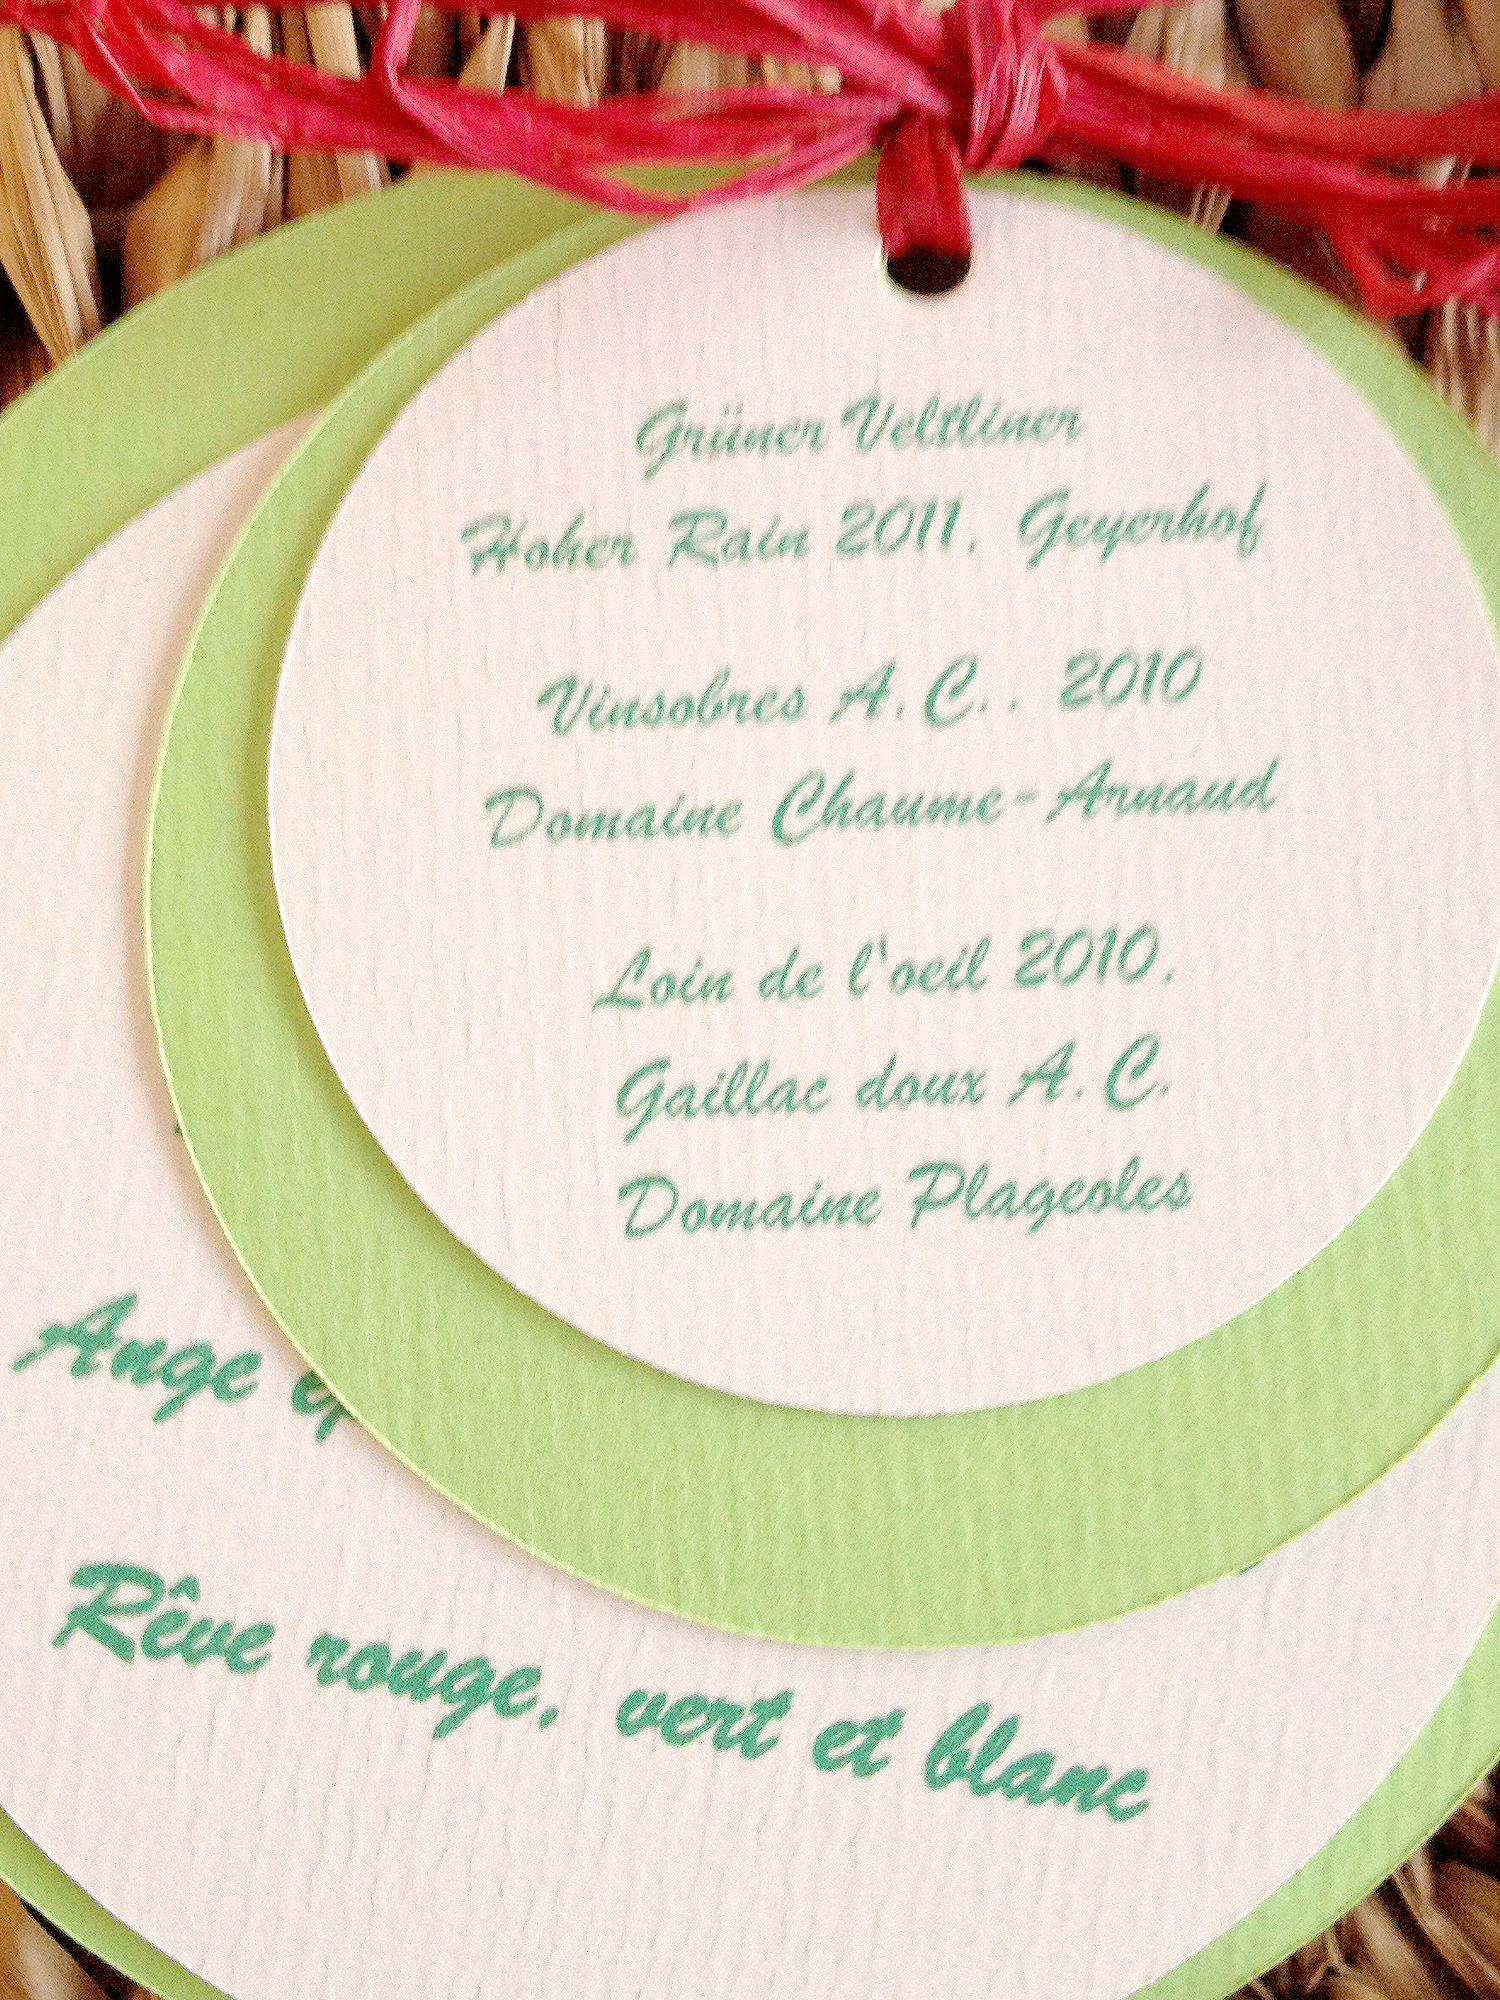 Grüner Veltliner
Hoher Rain 2011, Geyerhof
Vinsobres A.C., 2010
Domaine Chaume-Arnaud
Loin de l'oeil 2010,
Gaillac doux A.C.
Domaine Plageoles
Ange
Rêve rouge, vert et blanc